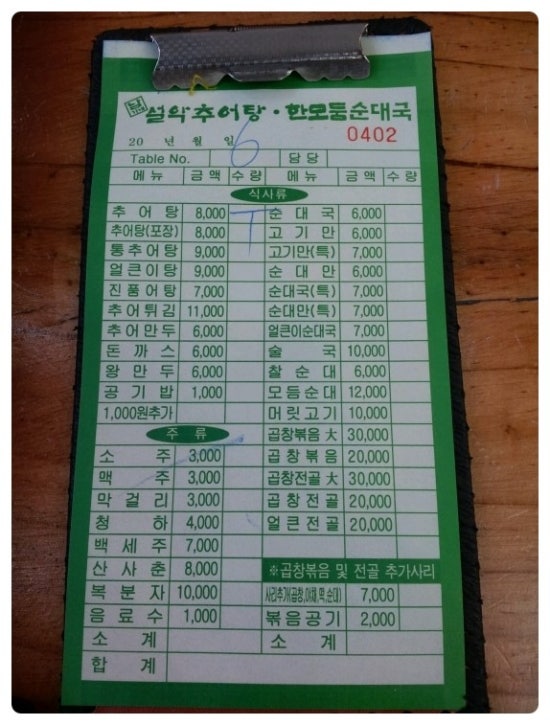 설악추어탕·한모둠순대국
0402
20 년 월 일
Table No. 6 담당
메뉴 금액 수량 메뉴 금액 수량
식사류
추어탕 8,000 T 순대국 6,000
추어탕(포장) 8,000 고기만 6,000
통추어탕 9,000 고기만(특) 7,000
얼큰이탕 9,000 순대만 6,000
진품어탕 7,000 순대국(특) 7,000
추어튀김 11,000 순대만(특) 7,000
추어만두 6,000 얼큰이순대국 7,000
돈까스 6,000 술국 10,000
왕만두 6,000 찰순대 6,000
공기밥 1,000 모듬순대 12,000
1,000원추가 머릿고기 10,000
주류 곱창볶음 大 30,000
소주 3,000 곱창볶음 20,000
맥주 3,000 곱창전골 大 30,000
막걸리 3,000 곱창전골 20,000
청하 4,000 얼큰전골 20,000
백세주 7,000
산사춘 8,000 ※곱창볶음 및 전골 추가사리
복분자 10,000 사리추가(곱창,야채,떡,순대) 7,000
음료수 1,000 볶음공기 2,000
소계 소계
합계